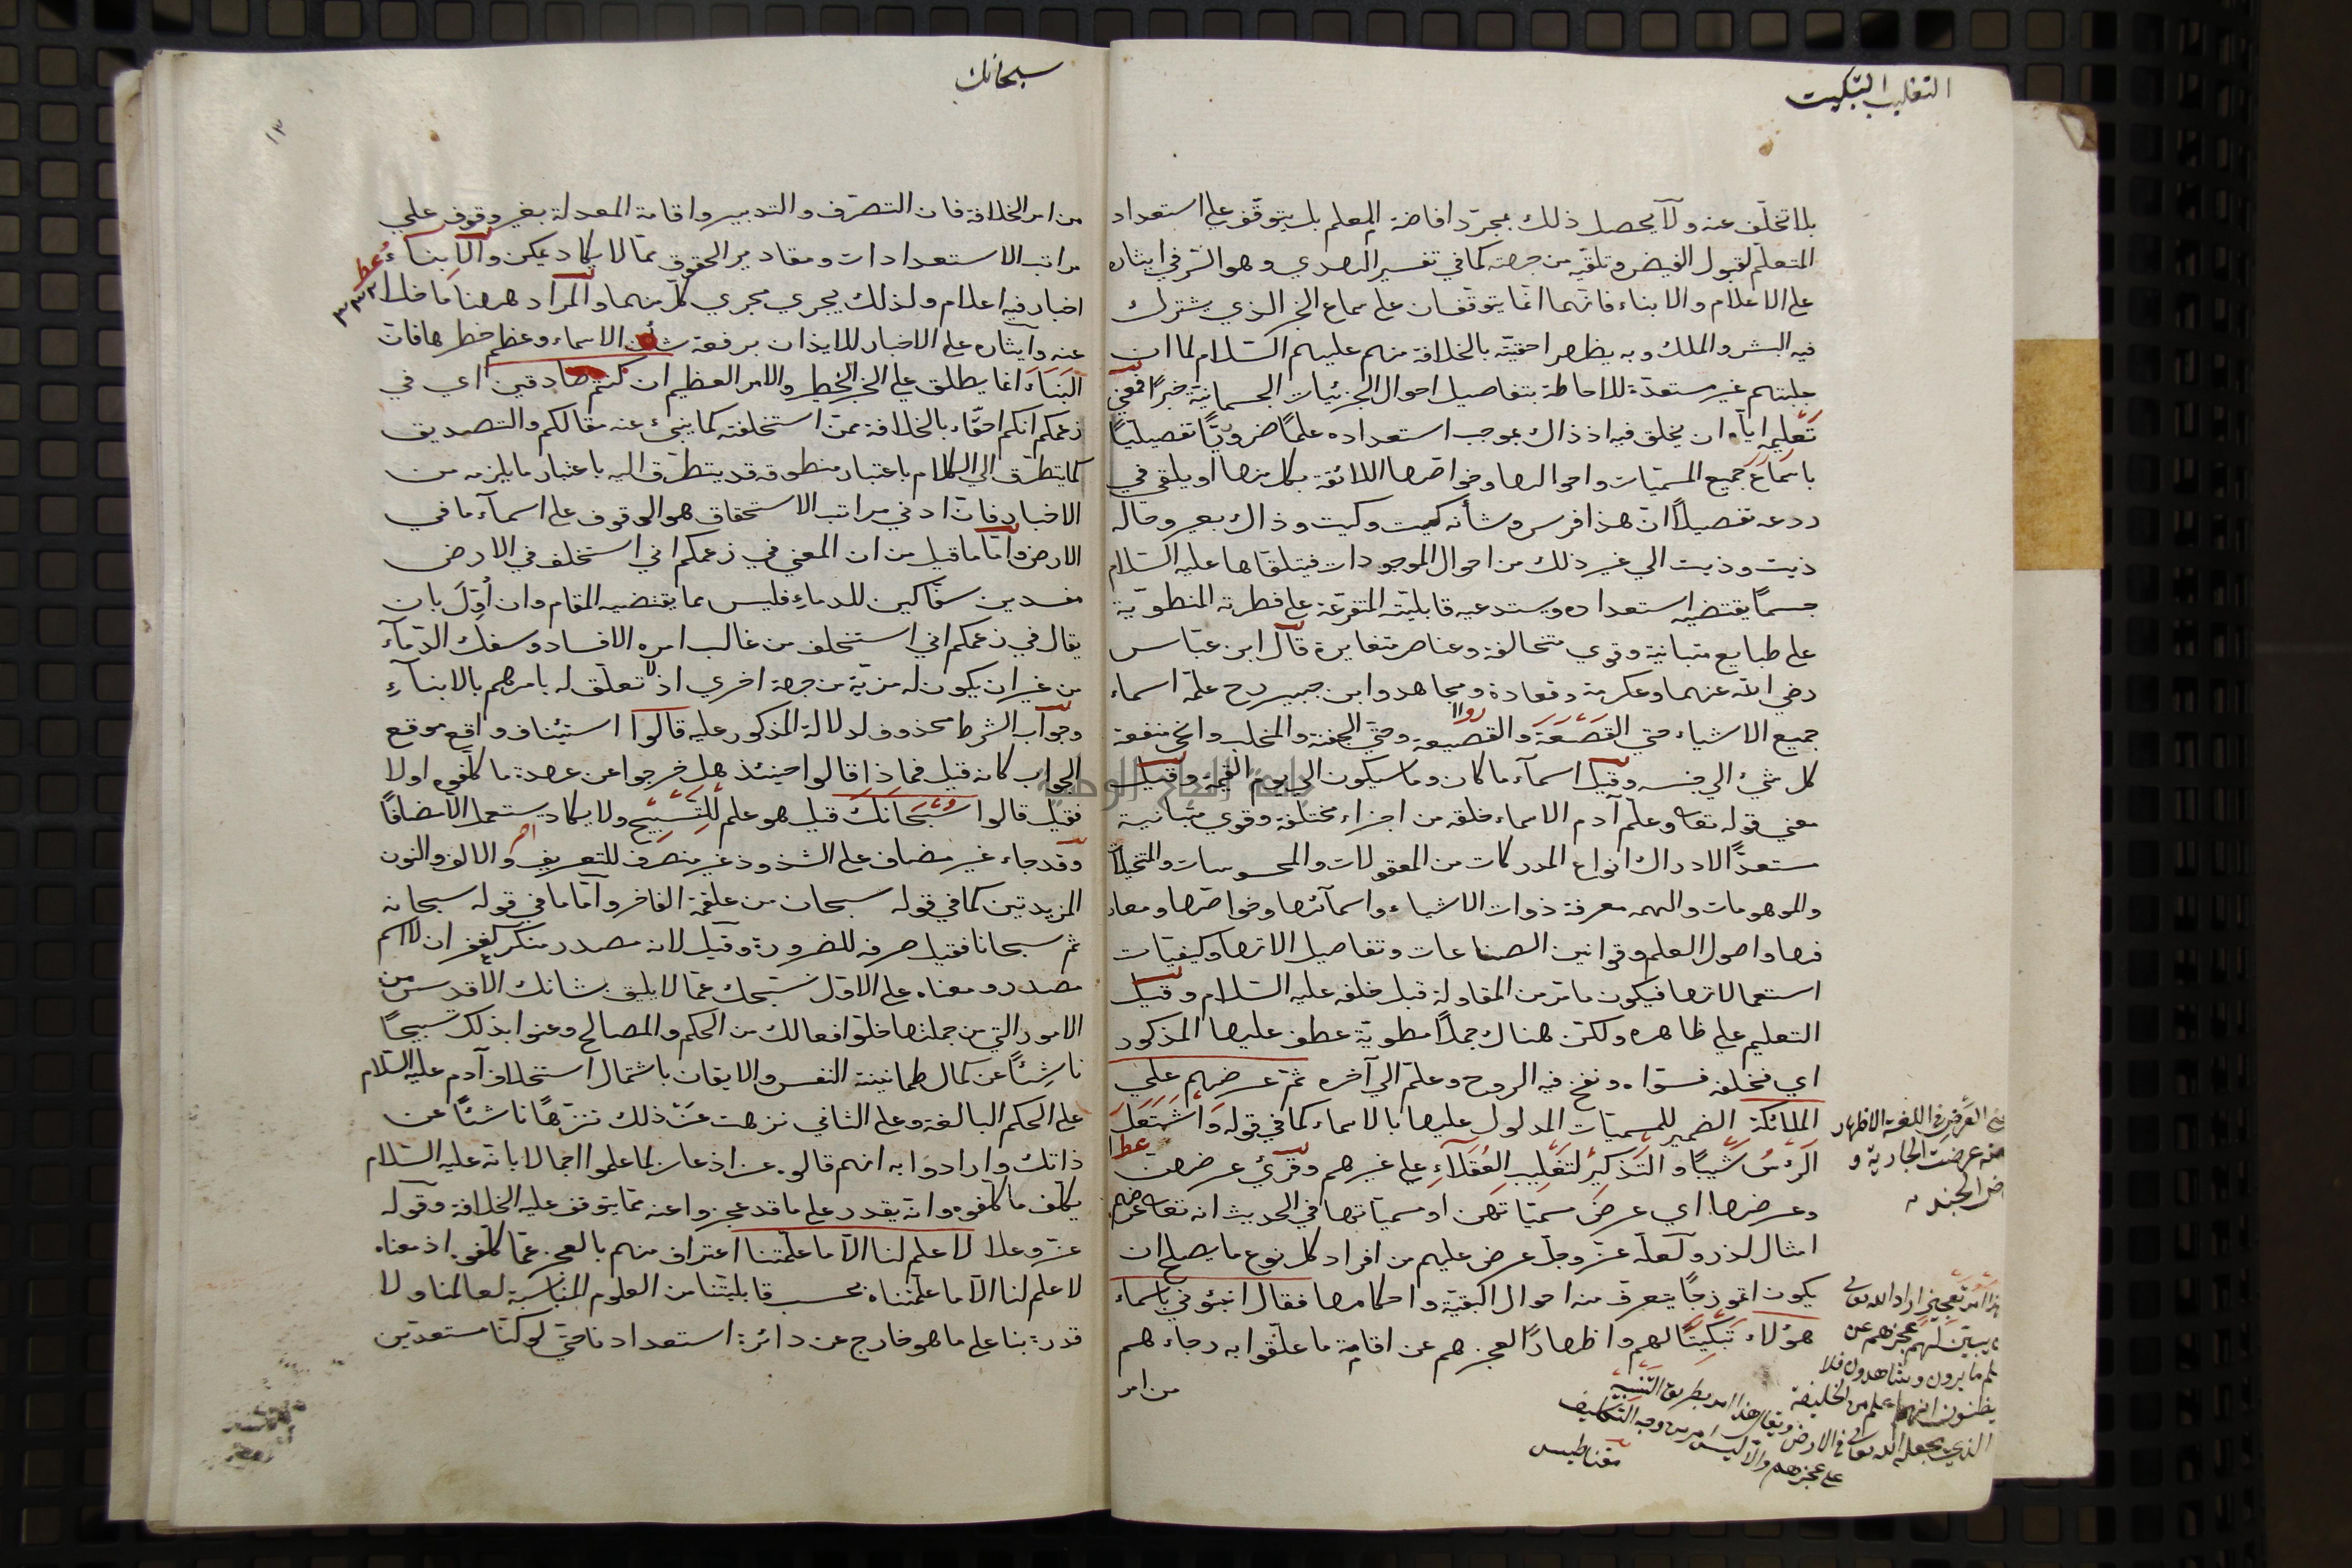 التغليب التبكيت
بلا تخلف عنه ولا يحصل ذلك بمجرد افاضة المعلم بل يتوقف على استعداد
المتعلم لقبول الفيض وتلقيه من جهته كما في تفسير الهدي وهو السر في ايثاره
على الاعلام والانباء فانهما انما يتوقفان على سماع الخبر الذي يشترك
فيه البشر والملك وبه يظهر احقيته بالخلافة منهم عليهم السلام لما ان
جبلتهم غير مستعدة للاحاطة بتفاصيل احوال الجزئيات الجسمانية خبرا فمعنى
تعليمه اياه ان يخلق فيه اذ ذاك بموجب استعداده علما ضروريا تفصيليا
باسماء جميع المسميات واحوالها وخواصها اللائقة بكل منها او يلقي في
روعه تفصيلا ان هذا فرس وشأنه كيت وكيت وذاك بعير وحاله
ذيت وذيت الي غير ذلك من احوال الموجودات فيتلقاها عليه السلام
حسبما يقتضيه استعداده ويستدعيه قابليته المتفرعة على فطرته المنطوية
على طبايع متباينة وقوي متخالفة وعناصر متغايرة قال ابن عباس
رضي الله عنهما وعكرمة وقتادة ومجاهد وابن جبير رح علمه اسماء
جميع الاشياء حتي القصعة والقصيعة وحتي الجفنة والمحلب وانحى منفعة
كل شيء الي جنسه وقيل اسماء ما كان وما سيكون الي يوم القيمة وقيل
معني قوله تعا وعلم آدم الاسماء خلقه من اجزاء مختلفة وقوي متباينة
مستعدا لادراك انواع المدركات من المعقولات والمحسوسات والمتخيلات
والموهومات والهمه معرفة ذوات الاشياء واسمائها وخواصها ومعار
فها واصول العلم وقوانين الصناعات وتفاصيل الاتها وكيفيات
استعمالاتها فيكون ما مر من المقاولة قبل خلقه عليه السلام وقيل
التعليم علي ظاهره ولكن هناك جملا مطوية عطف عليها المذكور
اي فخلقه فسواه ونفخ فيه الروح وعلم الي آخره ثم عرضهم علي
الملائكة الضمير للمسميات المدلول عليها بالاسماء كما في قوله واشتعل
الرأس شيبا والتذكير لتغليب العقلاء على غيرهم وقرئ عرضهن
وعرضها اي عرض مسمياتهن او مسمياتها في الحديث انه تعا عرضهم
امثال الذر ولعله عز وجل عرض عليهم من افراد كل نوع ما يصلح ان
يكون انموذجا يتعرف منه احوال البقية واحكامها فقال انبئوني باسماء
هؤلاء تبكيتا لهم واظهارا لعجزهم عن اقامة ما علقوا به رجاءهم
من امر
العرض في اللغة الاظهار
منه عرضت الجارية و
الجند
هذا امر تعجيز اراد الله تعالى
ان يبين لهم عجزهم عن
علم ما يرون ويشاهدون فلا
يظنون انهم اعلم من الخليفة
الذي يجعله الله تعالى في الارض ويقال هذا امر بطريق التنبيه
على عجزهم والا ليس امر من وجه التكليف
مقناطيس
سبحانك
١٣
من امر الخلافة فان التصرف والتدبير واقامة المعدلة بغير وقوف علي
مراتب الاستعدادات ومقادير الحقوق مما لا يكاد يمكن والانباء
عطر
اخبار فيه اعلام ولذلك يجري مجري كل منهما والمراد ههنا ما خلا
عنه وايثاره على الاخبار للايذان برفعة شأن الاسماء وعظم خطرها فان
النباء انما يطلق على الخبر الخطير والامر العظيم ان كنتم صادقين اي في
زعمكم انكم احقاء بالخلافة ممن استخلفته كما ينبئ عنه مقالكم والتصديق
كما يتطرق الي الكلام باعتبار منطوقه قد يتطرق اليه باعتبار ما يلزمه من
الاخبار فان ادني مراتب الاستحقاق هو الوقوف على اسماء ما في
الارض واما ما قيل من ان المعني في زعمكم اني استخلف في الارض
مفسدين سفاكين للدماء فليس مما يقتضيه المقام وان اول بان
يقال في زعمكم اني استخلف من غالب امره الافساد وسفك الدماء
من غير ان يكون له مزية من جهة اخري اذ لا تعلق له بامرهم بالانباء
وجواب الشرط محذوف لدلالة المذكور عليه قالوا استيناف واقع موقع
الجواب كانه قيل فماذا قالوا حينئذ هل خرجوا عن عهدة ما كلفوه اولا
فقيل قالوا سبحانك قيل هو علم للتسبيح ولا يكاد يستعمل الا مضافا
وقد جاء غير مضاف على الشذوذ غير منصرف للتعريف والالف والنون
المزيدتين كما في قوله سبحان من علقمة الفاخر واما ما في قوله سبحانه
ثم سبحانا فقيل صرفه للضرورة وقيل لانه مصدر منكر كغفران لا اسم
مصدر ومعناه على الاول نسبحك عما لا يليق بشانك الاقدس من
الامور التي من جملتها خلو افعالك من الحكم والمصالح وعنوا بذلك تسبيحا
ناشئا عن كمال طمانينة النفس والايقان باشتمال استخلاف آدم عليه السلام
على الحكم البالغة وعلى الثاني نزهت عن ذلك تنزها ناشئا عن
ذاتك وارادوا به انهم قالوه عن اذعان لما علموا اجمالا بانه عليه السلام
يكلف ما كلفوه وانه يقدر على ما قد عجزوا عنه مما يتوقف عليه الخلافة وقوله
عز وعلا لا علم لنا الا ما علمتنا اعتراف منهم بالعجز عما كلفوه اذ معناه
لا علم لنا الا ما علمتناه بحسب قابليتنا من العلوم المناسبة لعالمنا ولا
قدرة بنا على ما هو خارج عن دائرة استعدادنا حتي لو كنا مستعدين
جامعة النجاح الوطنية